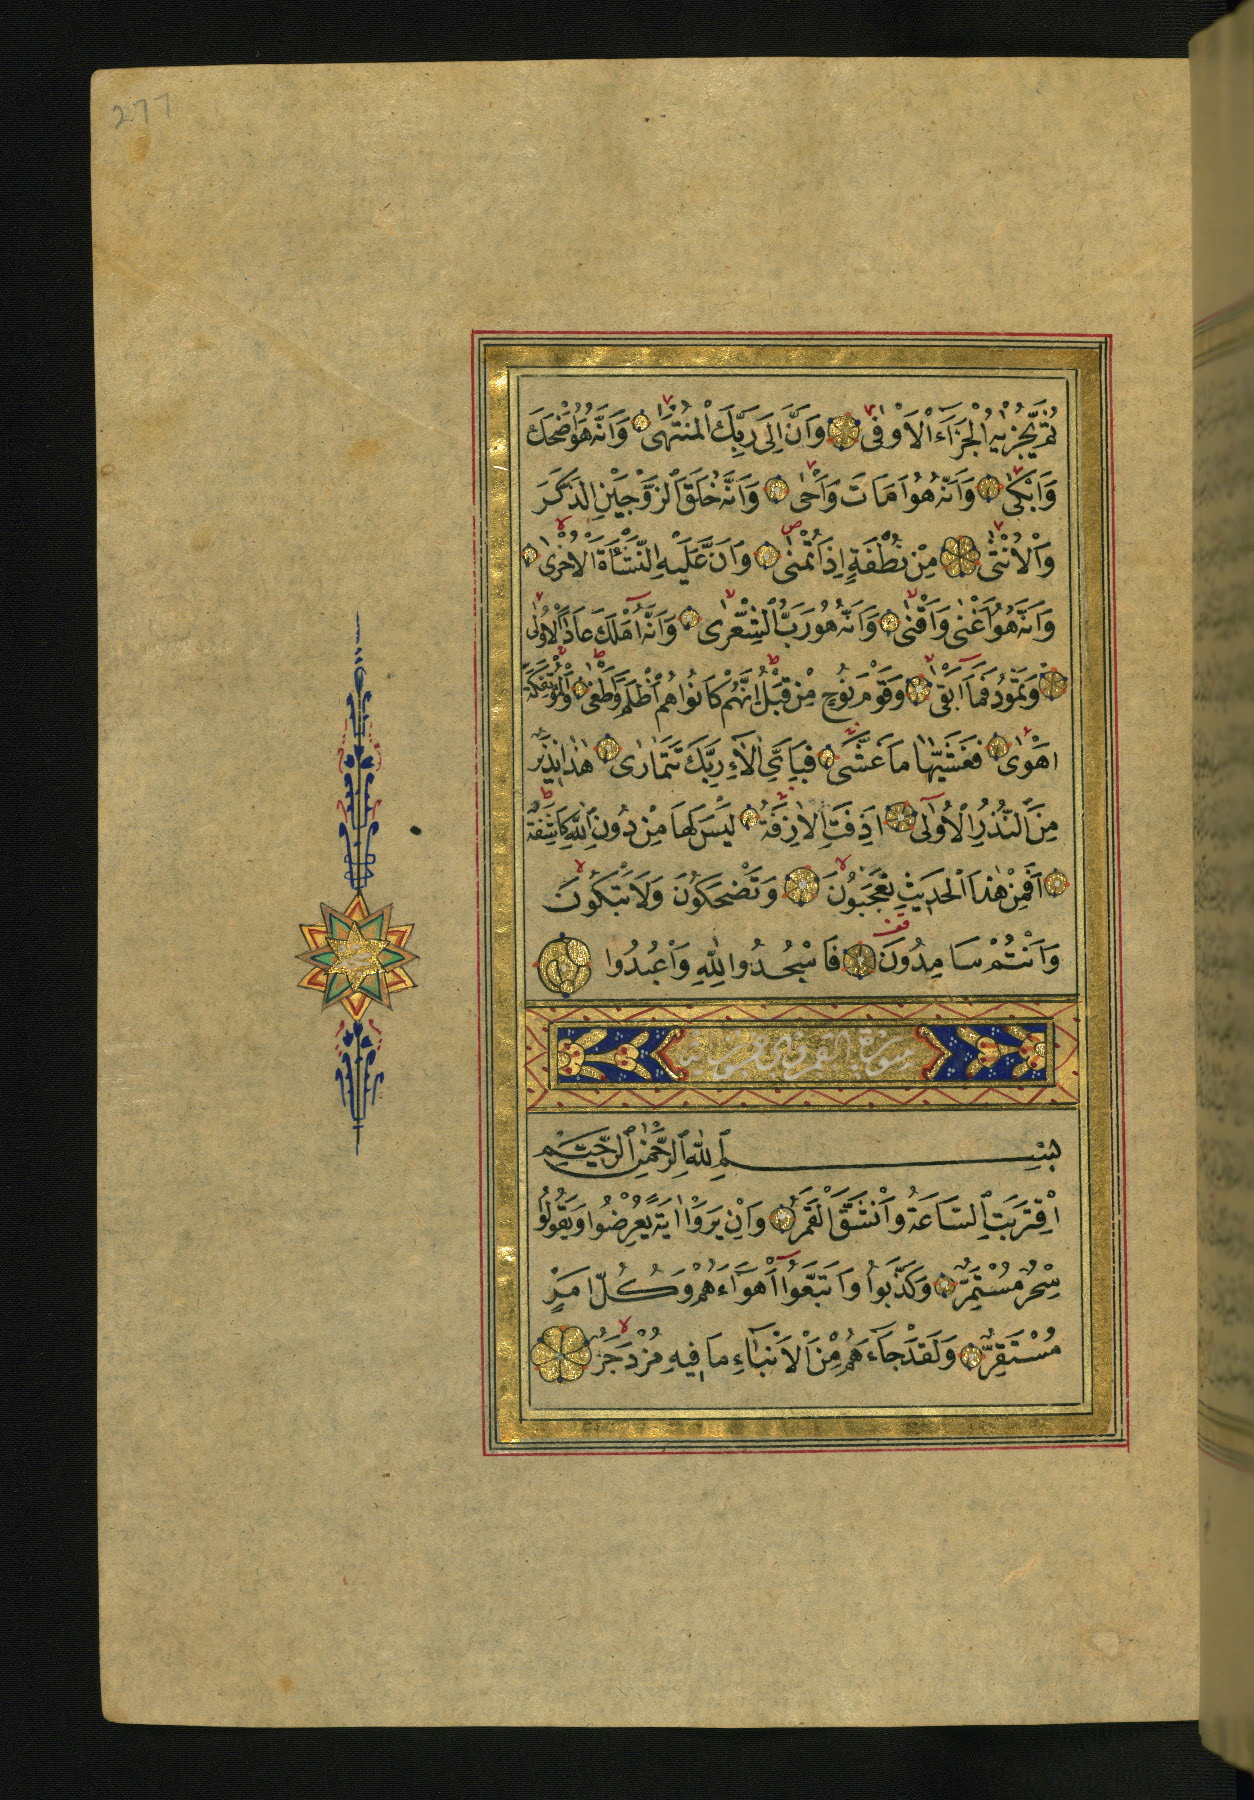 277
ثُمَّ يُجْزٰيهُ الْجَزَاءَ الْاَوْفٰى وَاَنَّ اِلٰى رَبِّكَ الْمُنْتَهٰى وَاَنَّهُ هُوَ اَضْحَكَ
وَاَبْكٰى وَاَنَّهُ هُوَ اَمَاتَ وَاَحْيٰى وَاَنَّهُ خَلَقَ الزَّوْجَيْنِ الذَّكَرَ
وَالْاُنْثٰى مِنْ نُطْفَةٍ اِذَا تُمْنٰى وَاَنَّ عَلَيْهِ النَّشْاَةَ الْاُخْرٰى
وَاَنَّهُ هُوَ اَغْنٰى وَاَقْنٰى وَاَنَّهُ هُوَ رَبُّ الشِّعْرٰى وَاَنَّهُ اَهْلَكَ عَادًا الْاُولٰى
وَثَمُودَ فَمَا اَبْقٰى وَقَوْمَ نُوحٍ مِنْ قَبْلُ اِنَّهُمْ كَانُوا هُمْ اَظْلَمَ وَاَطْغٰى وَالْمُؤْتَفِكَةَ
اَهْوٰى فَغَشّٰيهَا مَا غَشّٰى فَبِاَيِّ اٰلَاءِ رَبِّكَ تَتَمَارٰى هٰذَا نَذِيرٌ
مِنَ النُّذُرِ الْاُولٰى اَزِفَتِ الْاٰزِفَةُ لَيْسَ لَهَا مِنْ دُونِ اللّٰهِ كَاشِفَةٌ
اَفَمِنْ هٰذَا الْحَدِيثِ تَعْجَبُونَ وَتَضْحَكُونَ وَلَا تَبْكُونَ
وَاَنْتُمْ سَامِدُونَ فَاسْجُدُوا لِلّٰهِ وَاعْبُدُوا
سورة القمر
بِسْمِ اللّٰهِ الرَّحْمٰنِ الرَّحِيمِ
اِقْتَرَبَتِ السَّاعَةُ وَانْشَقَّ الْقَمَرُ وَاِنْ يَرَوْا اٰيَةً يُعْرِضُوا وَيَقُولُوا
سِحْرٌ مُسْتَمِرٌّ وَكَذَّبُوا وَاتَّبَعُوا اَهْوَاءَهُمْ وَكُلُّ اَمْرٍ
مُسْتَقِرٌّ وَلَقَدْ جَاءَهُمْ مِنَ الْاَنْبَاءِ مَا فِيهِ مُزْدَجَرٌ